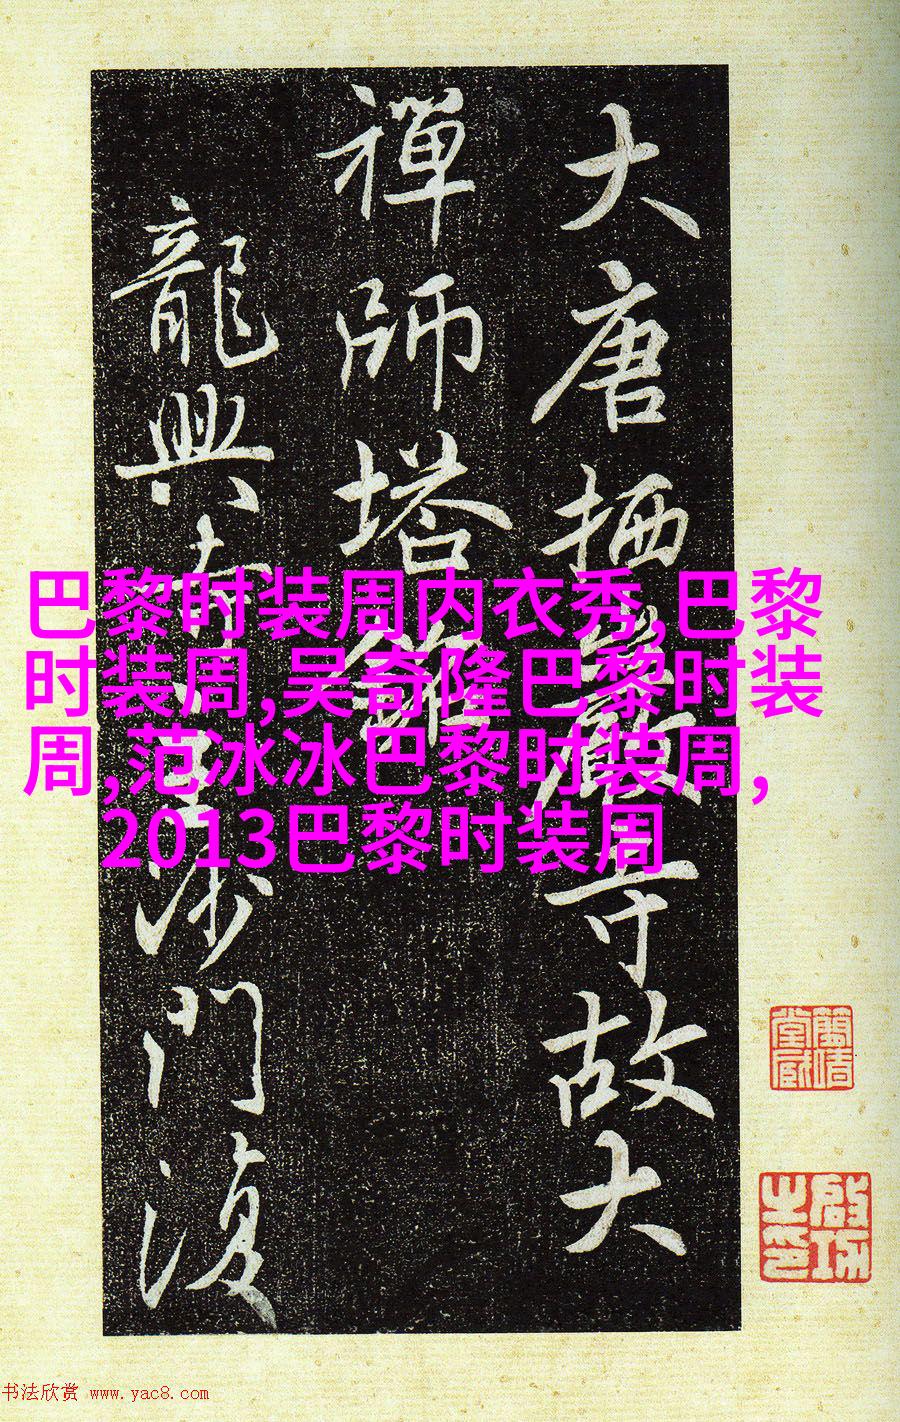 大唐栖巖寺故大
禪師塔銘
龍興寺沙門復
巴黎时装周内衣秀,巴黎
时装周,吴奇隆巴黎时装
周,范冰冰巴黎时装周,
2013巴黎时装周
啟功之印
书法欣赏 www.yac8.com